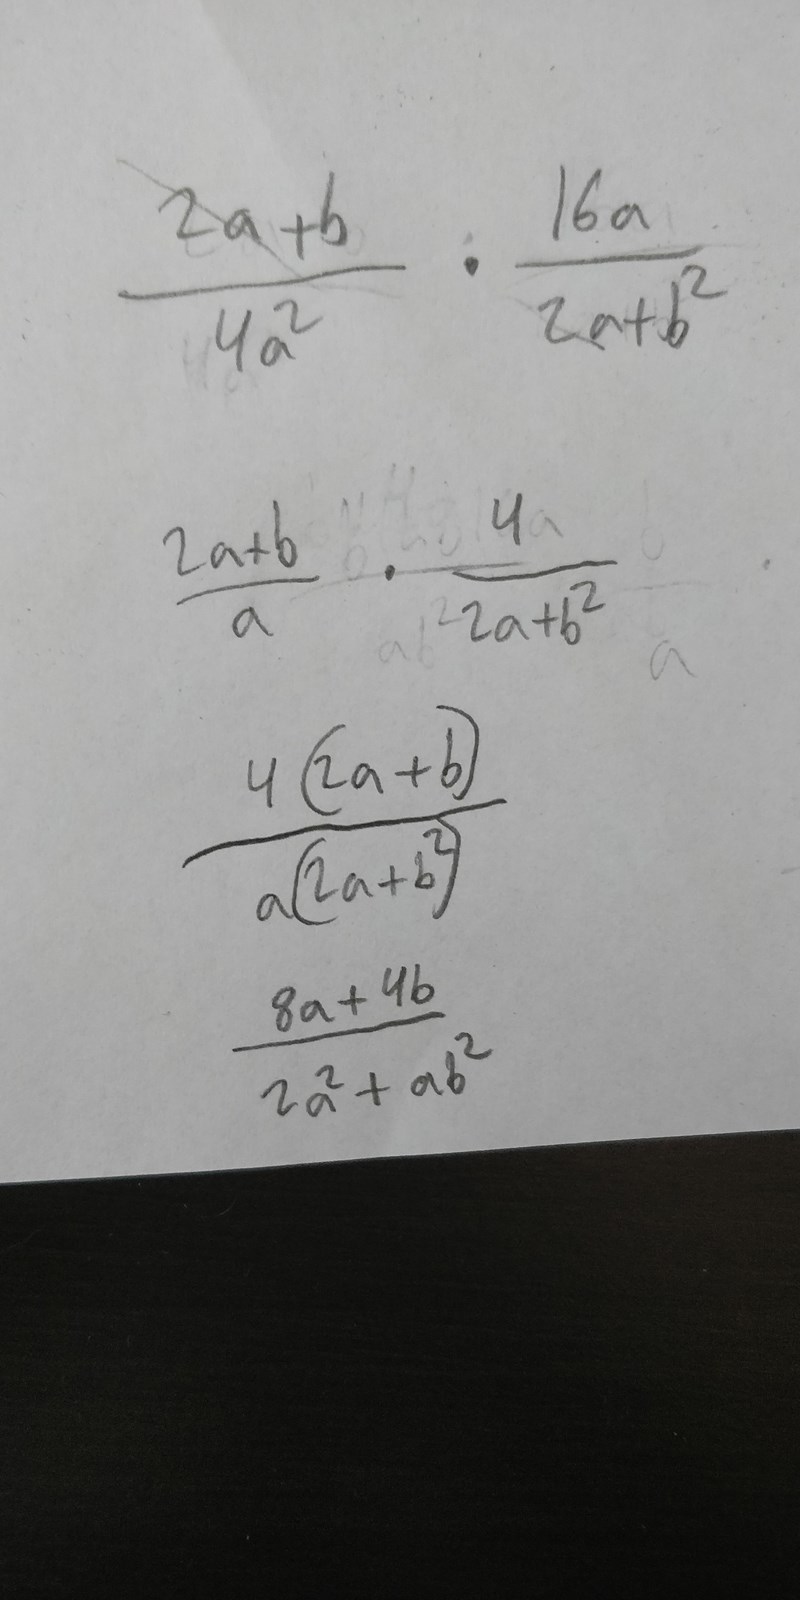 2a+b / 4a² · 16a / 2a+b²
2a+b / a · 4 / 2a+b²
4(2a+b) / a(2a+b²)
8a+4b / 2a²+ab²